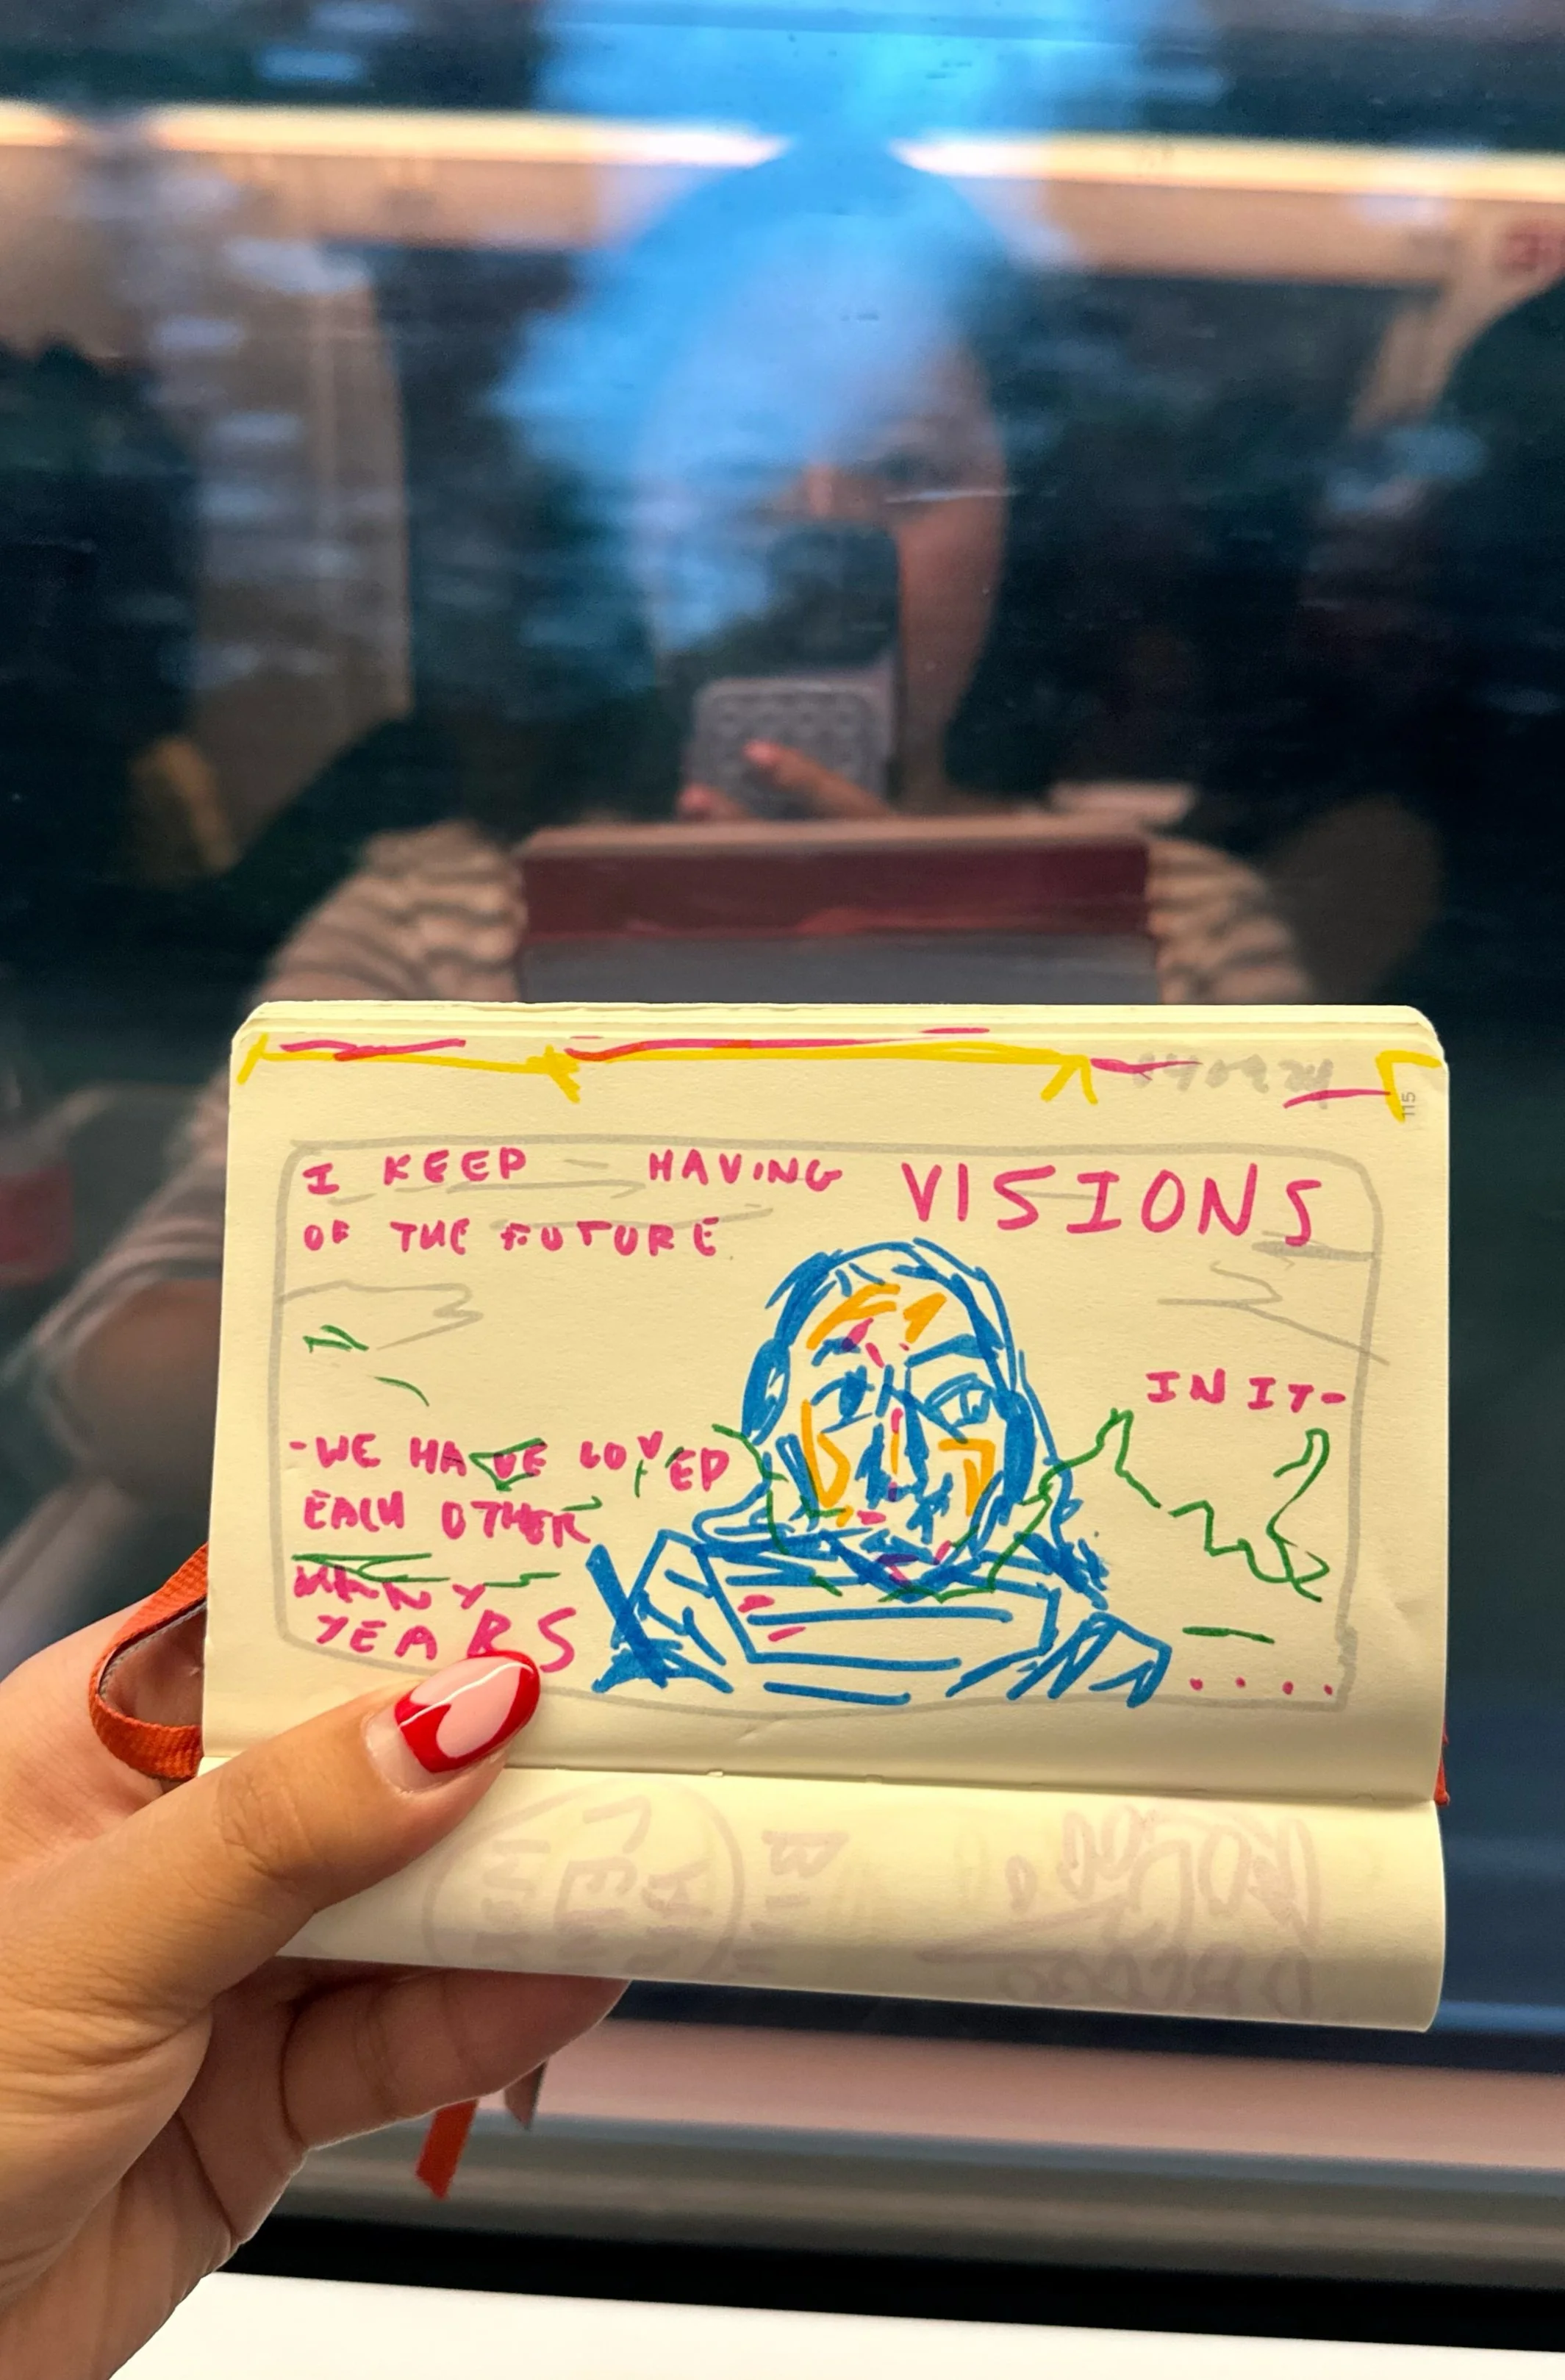 I KEEP HAVING VISIONS
OF THE FUTURE
IN IT-
-WE HAVE LOVED
EACH OTHER
MANY
YEARS
....
115